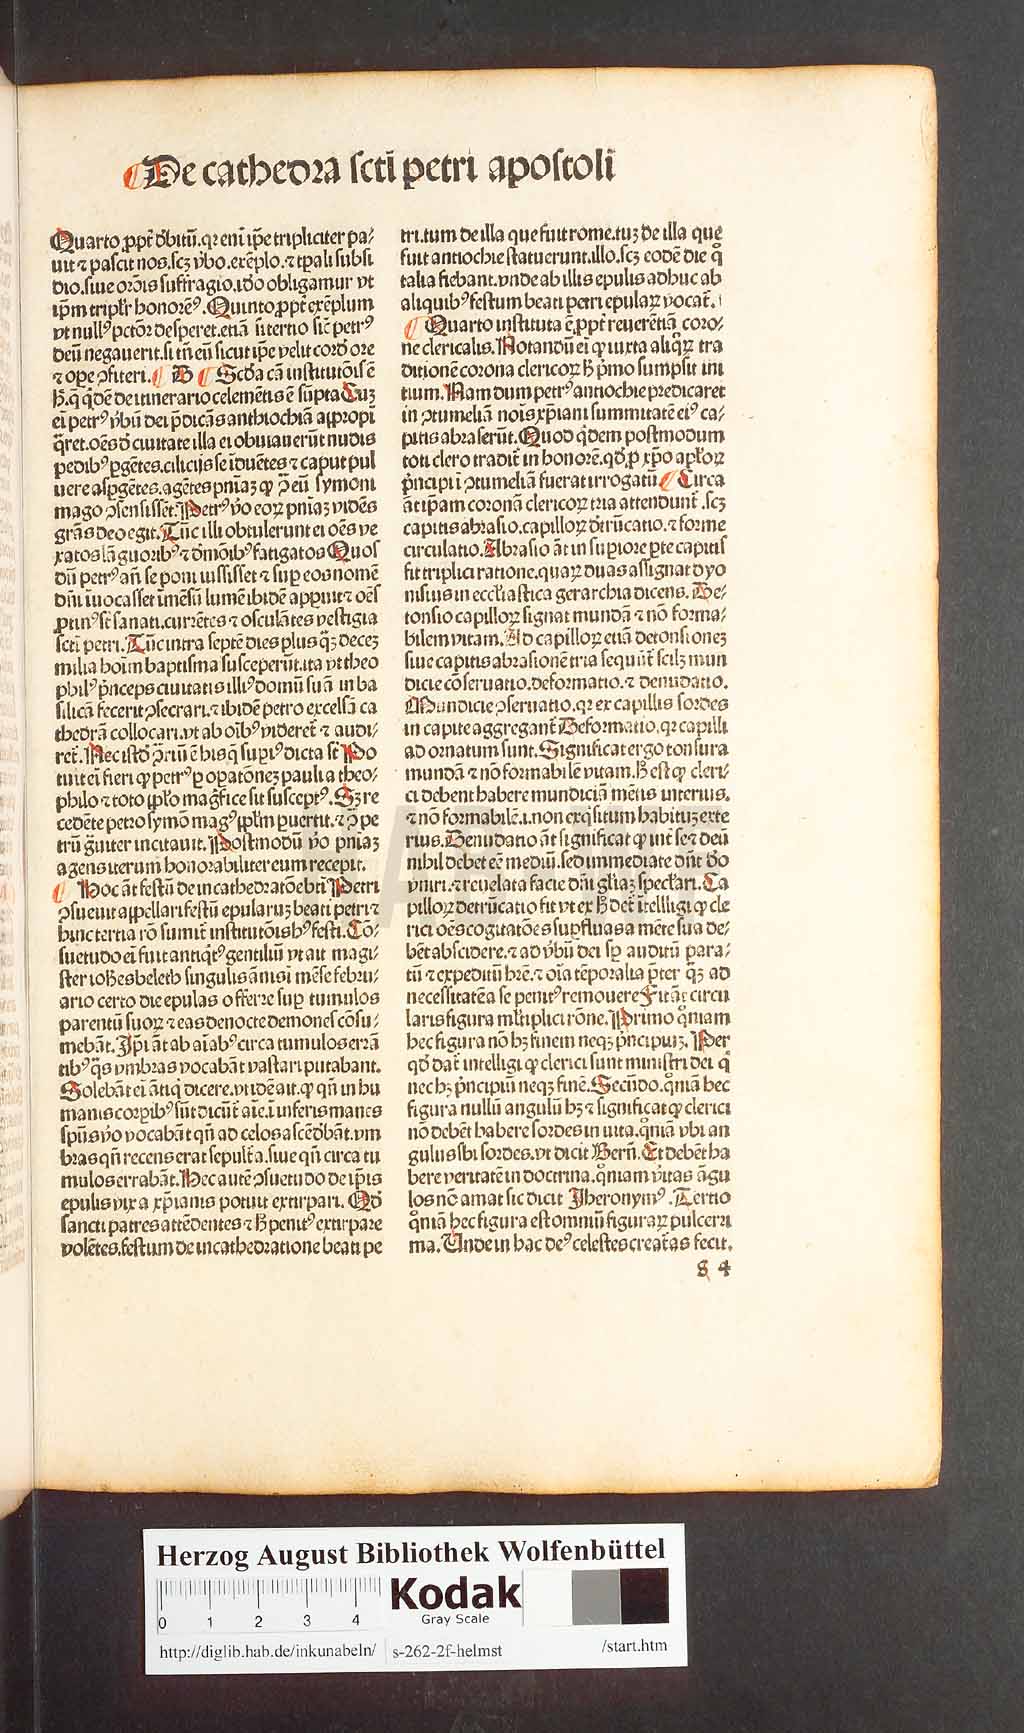 De cathedra scti petri apostoli
Quarto ꝓpt̄ dʼbitū.qꝛ enī ip̄e tripliciter pa⸗
uit ⁊ pascit nos.scꝫ vʼbo.exēplo.⁊ tꝑali subsi
dio.siue orōis suffragio.idʼo obligamur vt
ip̄m triplʼr honorēꝰ. Quinto ꝓpt̄ exēplum
vt nullꝰ pctōꝛ desperet.etiā si tertio sic̄ petrꝰ
deū negauerit.si tn̄ eū sicut ip̄e velit cordʼ ore
⁊ oꝑe ↄfiteri. B Scdʼa cā institutōis ē
hʼ.q̄ q̇dē de itinerario celemētis ē sūpta Cuꝫ
ei petrꝰ vʼbū dei p̄dicās anthiochiā aꝓpopī
q̄ret.oēs dʼ ciuitate illa ei obuiauerūt nudis
pedibꝰ ꝑgētes.cilicijs se īduētes ⁊ caput pul
uere asꝑgētes.agētes pn̄iaꝫ ꝙ ↄ̄ eū symoni
mago ↄsensissēt.Petrꝰ vʼo eoꝝ pn̄iaꝫ vidēs
grās deo egit.Tūc illi obtulerunt ei oēs ve
xatos lāguoribꝰ ⁊ dʼmōibꝰ fatigatos Quos
dū petrꝰ an̄ se poni iussisset ⁊ suꝑ eos nomē
dn̄i īuocasset īmēsū lumē ibidē apꝑuit ⁊ oēs
ꝓtinꝰ sūt sanati.currētes ⁊ osculātes vestigia
scti petri.Tūc intra septē dies plus qꝫ̄ deceꝫ
milia hoīm baptisma susceperūt.ita vt theo
philꝰ p̄nceps ciuitatis illiꝰ domū suā in ba
silicā fecerit ↄsecrari.⁊ ibidē petro excelsā ca
thedrā collocari.vt ab oībꝰ videret̄ ⁊ audi⸗
ret̄.Nec istdʼ ↄ̄riū ē his q̄ supiꝰ dicta st̄ Po
tuit eī fieri ꝙ petrꝰ ꝑ oꝑatōneꝫ pauli a theo⸗
philo ⁊ toto ip̄lo mag̅fice sit susceptꝰ. Sꝫ re
cedēte petro symō magꝰ ip̄lm ꝑuertit.⁊ ↄ̄ pe
trū ḡuiter incitauit.Postmodū vʼo pn̄iaꝫ
agens iterum honorabiliter eum recepit.
Hoc āt festū de incathedratōe bt̄i Petri
ↄsueuit appellari festū epularuꝫ beati petri ⁊
hinc tertia rō sumit̄ institutōis hꝰ festi. Cō⸗
suetudo eī fuit antiq̇tꝰ gentiliū vt ait magi⸗
ster iohēs beleth singulis ānis ī mēse febru⸗
ario certo die epulas offerre suꝑ tumulos
parentū suoꝝ ⁊ eas de nocte demones cōsu⸗
mebāt. Ip̄i āt ab aīabꝰ circa tumulos errā
tibꝰ q̄s vmbras vocabāt vastari putabant.
Solebāt eī ātiq̇ dicere.vt idē ait.ꝙ qn̄ in hu
manis corꝑibꝰ sūt dicūt̄ aīe.ī inferis manes
spūs vʼo vocabāt qn̄ ad celos ascēdʼbāt.vm
bras qn̄ recens erat sepult̄a.siue qn̄ circa tu
mulos errabāt.Hec autē ↄsuetudo de ip̄is
epulis vix a xp̄ianis potuit extirpari. Qdʼ
sancti patres attēdentes ⁊ hʼ penitꝰ extirpare
volētes.festum de incathedratione beati pe
tri.tum de illa que fuit rome.tuꝫ de illa que
fuit antiochie statuerunt.illo.scꝫ eodē die q̊
talia fiebant.vnde ab illis epulis adhuc ab
aliquibꝰ festum beati petri epulaꝝ vocat̄.
Quarto instituta ē ꝓpt̄ reuerētiā coro⸗
ne clericalis. Notandū eī ꝙ iuxta aliq̊ꝝ tra
ditionē corona clericoꝝ hʼ p̄mo sumpsit ini
tium. Nam dum petrꝰ antiochie predicaret
in ↄtumeliā nois xp̄iani summitatē eiꝰ ca⸗
pitis abraserūt.Quod q̇dem postmodum
toti clero tradit̄ in honorē.qdʼ.ꝑ xp̄o aplʼoꝝ
p̄ncipi ī ↄtumeliā fuerat irrogatū Circa
āt ip̄am coronā clericoꝝ tria attendunt̄.scꝫ
capitis abrasio.capilloꝝ dʼtrūcatio.⁊ forme
circulatio.Abrasio āt in suꝑiore ꝑte capitis
fit triplici ratione.quaꝝ duas assignat dyo
nisius in ecclʼiastica gerarchia dicens. De⸗
tonsio capilloꝝ signat mundā ⁊ nō forma⸗
bilem vitam. Ad capilloꝝ etiā detonsioneꝫ
siue capitis abrasionē tria sequūt̄ scilꝫ mun
dicie cōseruatio.deformatio.⁊ denudatio.
Mundicie ↄseruatio.qꝛ ex capillis sordes
in capite aggregant̄ Deformatio.qꝛ capilli
ad ornatum sunt.Significat ergo tonsura
mundā ⁊ nō formabilē vitam.hʼ est ꝙ cleri⸗
ci debent habere mundiciā mētis interius.
⁊ nō formabilē.i.non exq̇situm habituꝫ exte
rius.Denudatio āt significat ꝙ int̄ se ⁊ deū
nihil debet eē mediū.sed immediate dn̄t dʼo
vniri.⁊ reuelata facie dn̄i gl̄iaꝫ speclʼari.Ca
pilloꝝ detrūcatio fit vt ex hʼ det̄ ītelligi ꝙ cle
rici oēs cogitatōes suꝑfluas a mēte sua de⸗
bēt abscidere.⁊ ad vʼbū dei sꝑ auditū para⸗
tū ⁊ expeditū hr̄e.⁊ oīa tēporalia p̄ter qꝫ̄ ad
necessitatē a se penitꝰ remouere Fit āt circu
laris figura mlʼtiplici rōne. Primo qm̊iam
hec figura nō hꝫ finem neqꝫ p̄ncipiuꝫ. Per
qdʼ dat̄ intelligi ꝙ clerici sunt ministri dei q̇
nec hꝫ p̄ncipiū neqꝫ finē.Secūdo.qm̊iā hec
figura nullū angulū hꝫ ⁊ significat ꝙ clerici
nō debēt habere sordes in uita.qm̊iā vbi an
gulus ibi sordes.vt dicit Bern̄. Et debēt ha
bere veritatē in doctrina.qm̊iam vʼitas āgu
los nō amat sic dicit Jheronymꝰ . Tertio
qm̊iā hec figura est omniū figuraꝝ pulcerri
ma.Unde in hac deꝰ celestes creat̄as fecit.
S 4
HAB WF
Herzog August Bibliothek Wolfenbüttel
0 1 2 3 4
Kodak
Gray Scale
http://diglib.hab.de/inkunabeln/ s-262-2f-helmst /start.htm